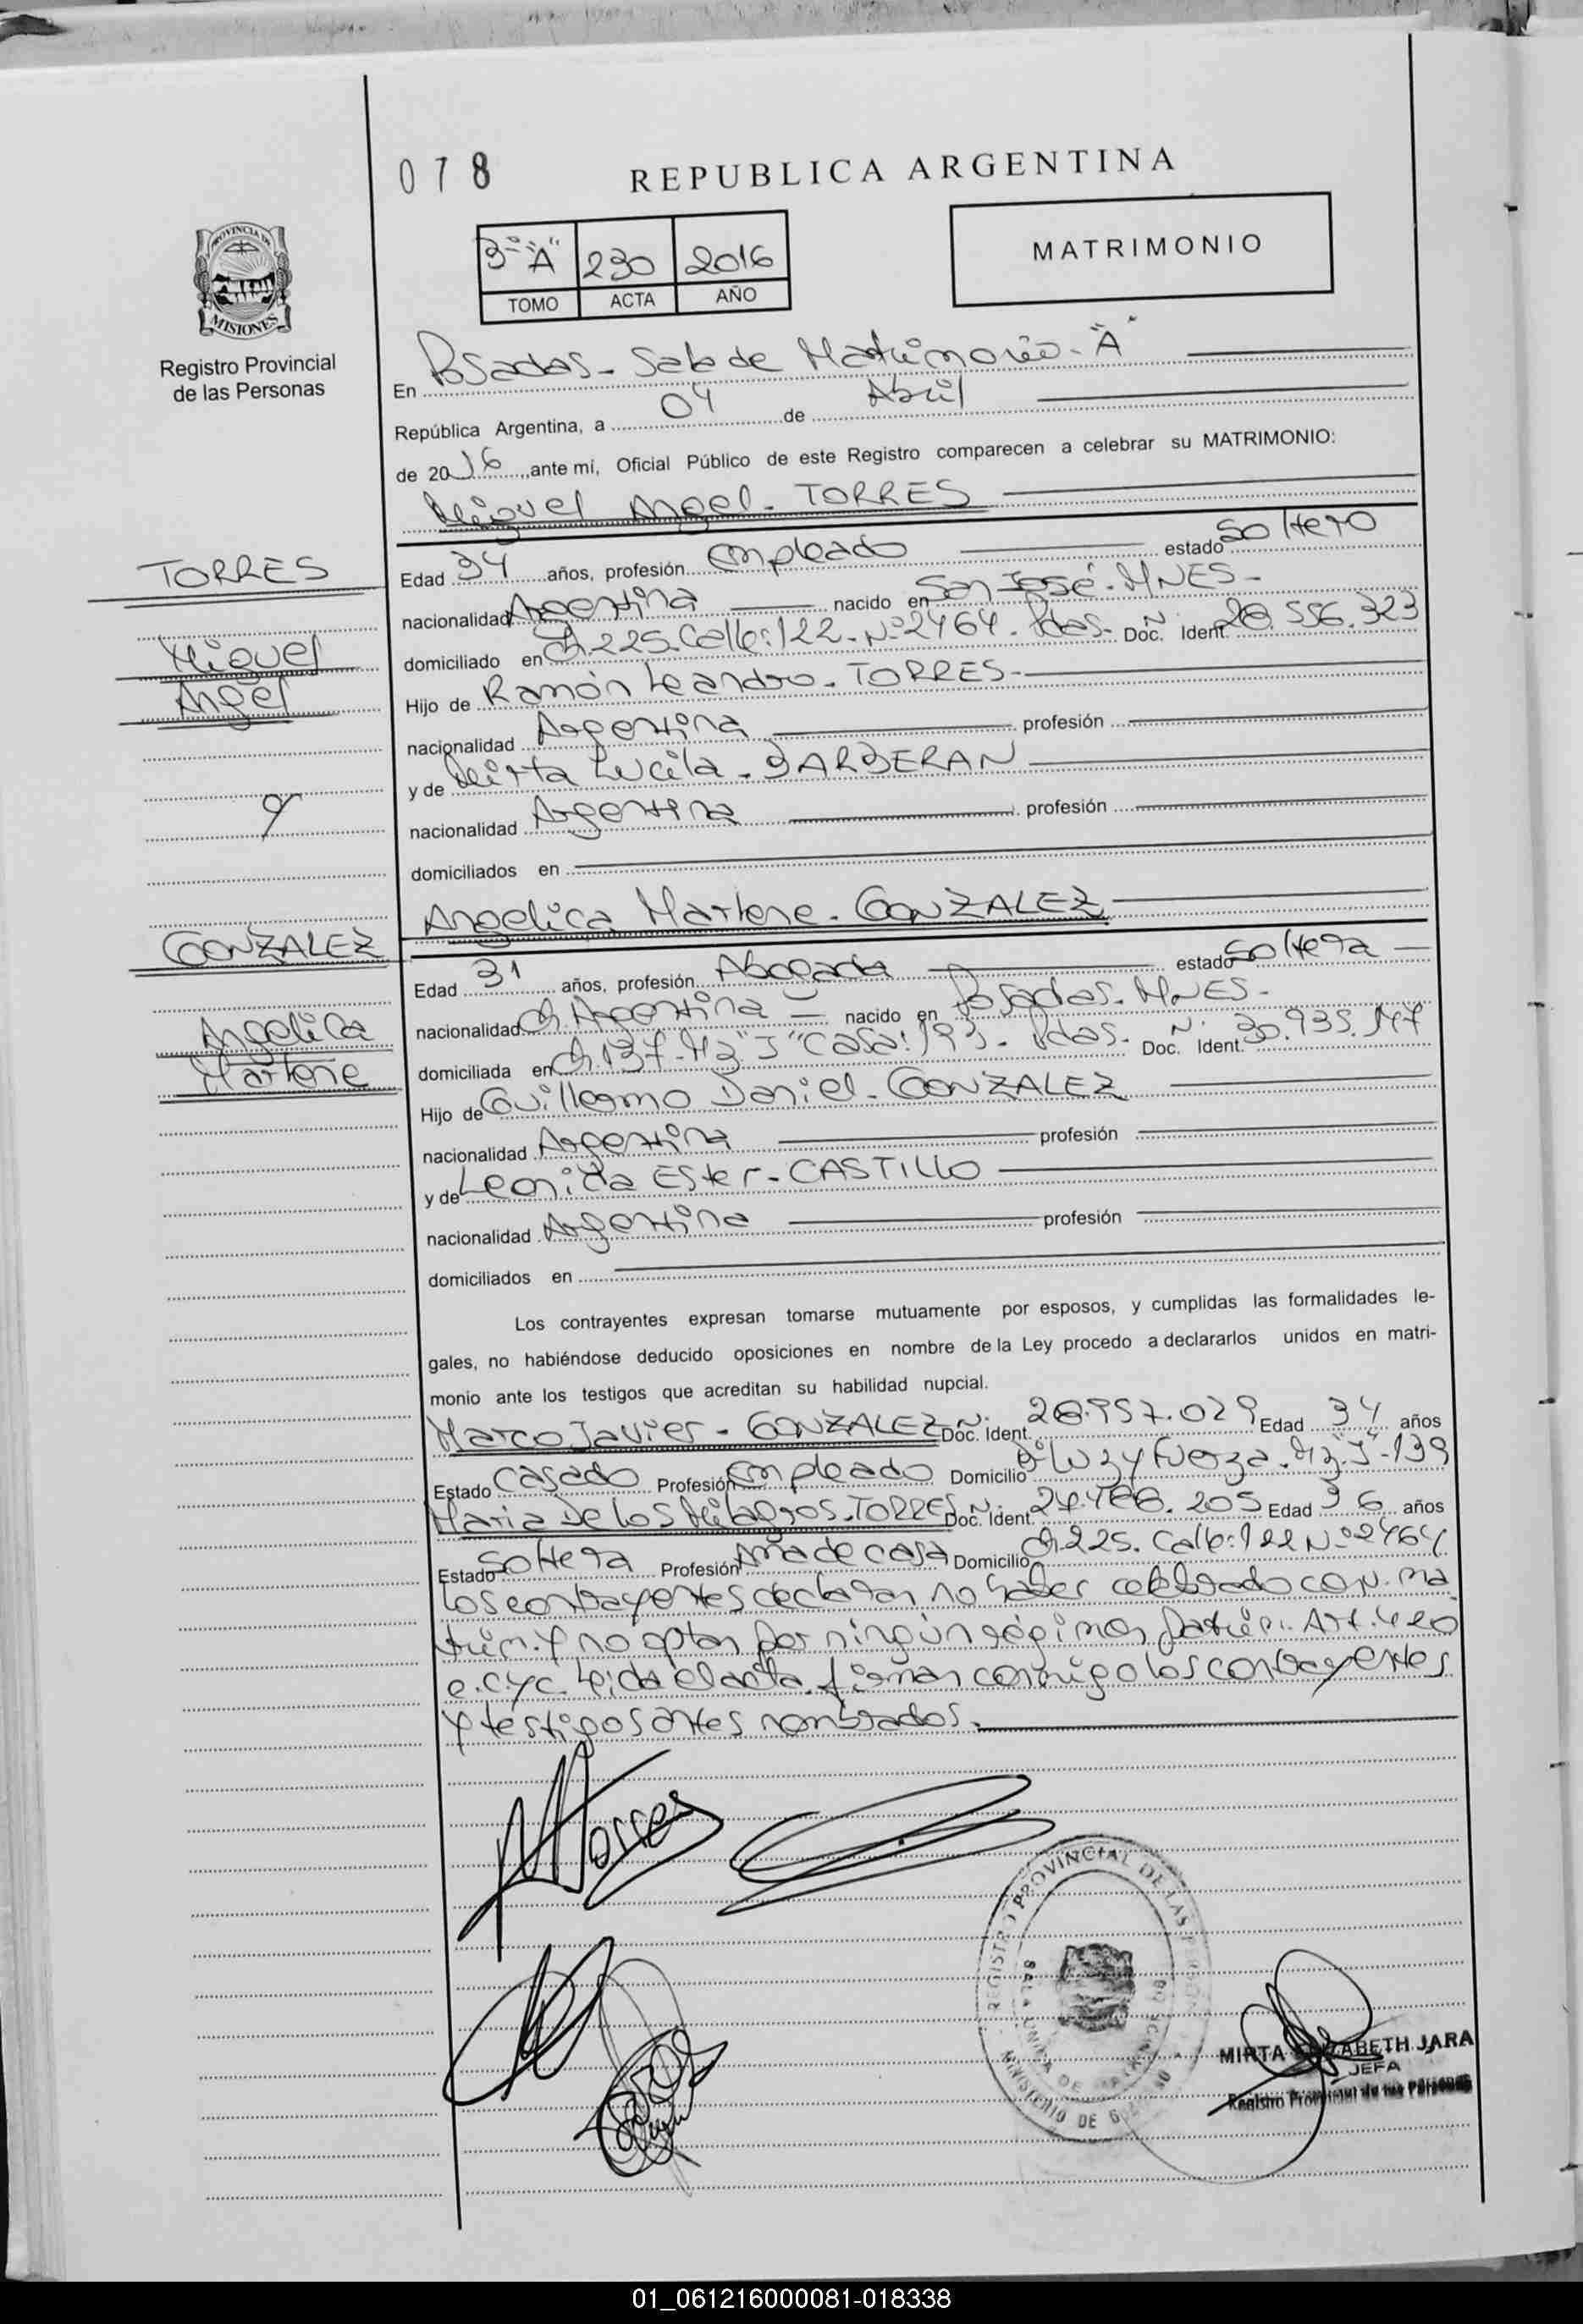 078
REPUBLICA ARGENTINA
PROVINCIA DE
MISIONES
Registro Provincial
de las Personas
3º "A" 230 2016
TOMO ACTA AÑO
MATRIMONIO
En Posadas - Sala de Matrimonio - "A"
República Argentina, a 04 de Abril
de 2016, ante mí, Oficial Público de este Registro comparecen a celebrar su MATRIMONIO:
Miguel Angel - TORRES
TORRES
Miguel
Angel
y
GONZALEZ
Angelica
Marlene
Edad 34 años, profesión Empleado estado Soltero
nacionalidad Argentina nacido en San José - MNES -
domiciliado en Ch. 225. Calle: 122 - Nº 2464. Pdas. Doc. Ident. Nº 28.556.323
Hijo de Ramón Leandro - TORRES -
nacionalidad Argentina profesión
y de Mirta Lucila - BARBERAN
nacionalidad Argentina profesión
domiciliados en
Angelica Marlene - GONZALEZ
Edad 31 años, profesión Abogada estado Soltera
nacionalidad Argentina nacido en Posadas - MNES -
domiciliada en Ch. 137 - Mz "J" Casa: 193 - Pdas. Doc. Ident. Nº 30.935.147
Hijo de Guillermo Daniel - GONZALEZ
nacionalidad Argentina profesión
y de Leonida Ester - CASTILLO
nacionalidad Argentina profesión
domiciliados en
Los contrayentes expresan tomarse mutuamente por esposos, y cumplidas las formalidades le-
gales, no habiéndose deducido oposiciones en nombre de la Ley procedo a declararlos unidos en matri-
monio ante los testigos que acreditan su habilidad nupcial.
Marco Javier - GONZALEZ Doc. Ident. Nº 28.957.029 Edad 34 años
Estado Casado Profesión Empleado Domicilio Bº Luz y Fuerza. Mz. "J" - 139
Maria De Los Milagros - TORRES Doc. Ident. Nº 205 Edad 36 años
Estado Soltera Profesión Ama de casa Domicilio Ch. 225. Calle: 122 Nº 2464
Los contrayentes declaran no haber celebrado conv. ma
trim. y no optan por ningún régimen patrim. Art. 420
e. CyC. Leída el acta, firman conmigo los contrayentes
y testigos antes nombrados.
Torres
REGISTRO PROVINCIAL DE LAS
MINISTERIO DE
MIRTA ELIZABETH JARA
JEFA
Registro Provincial de las Personas
01_061216000081-018338